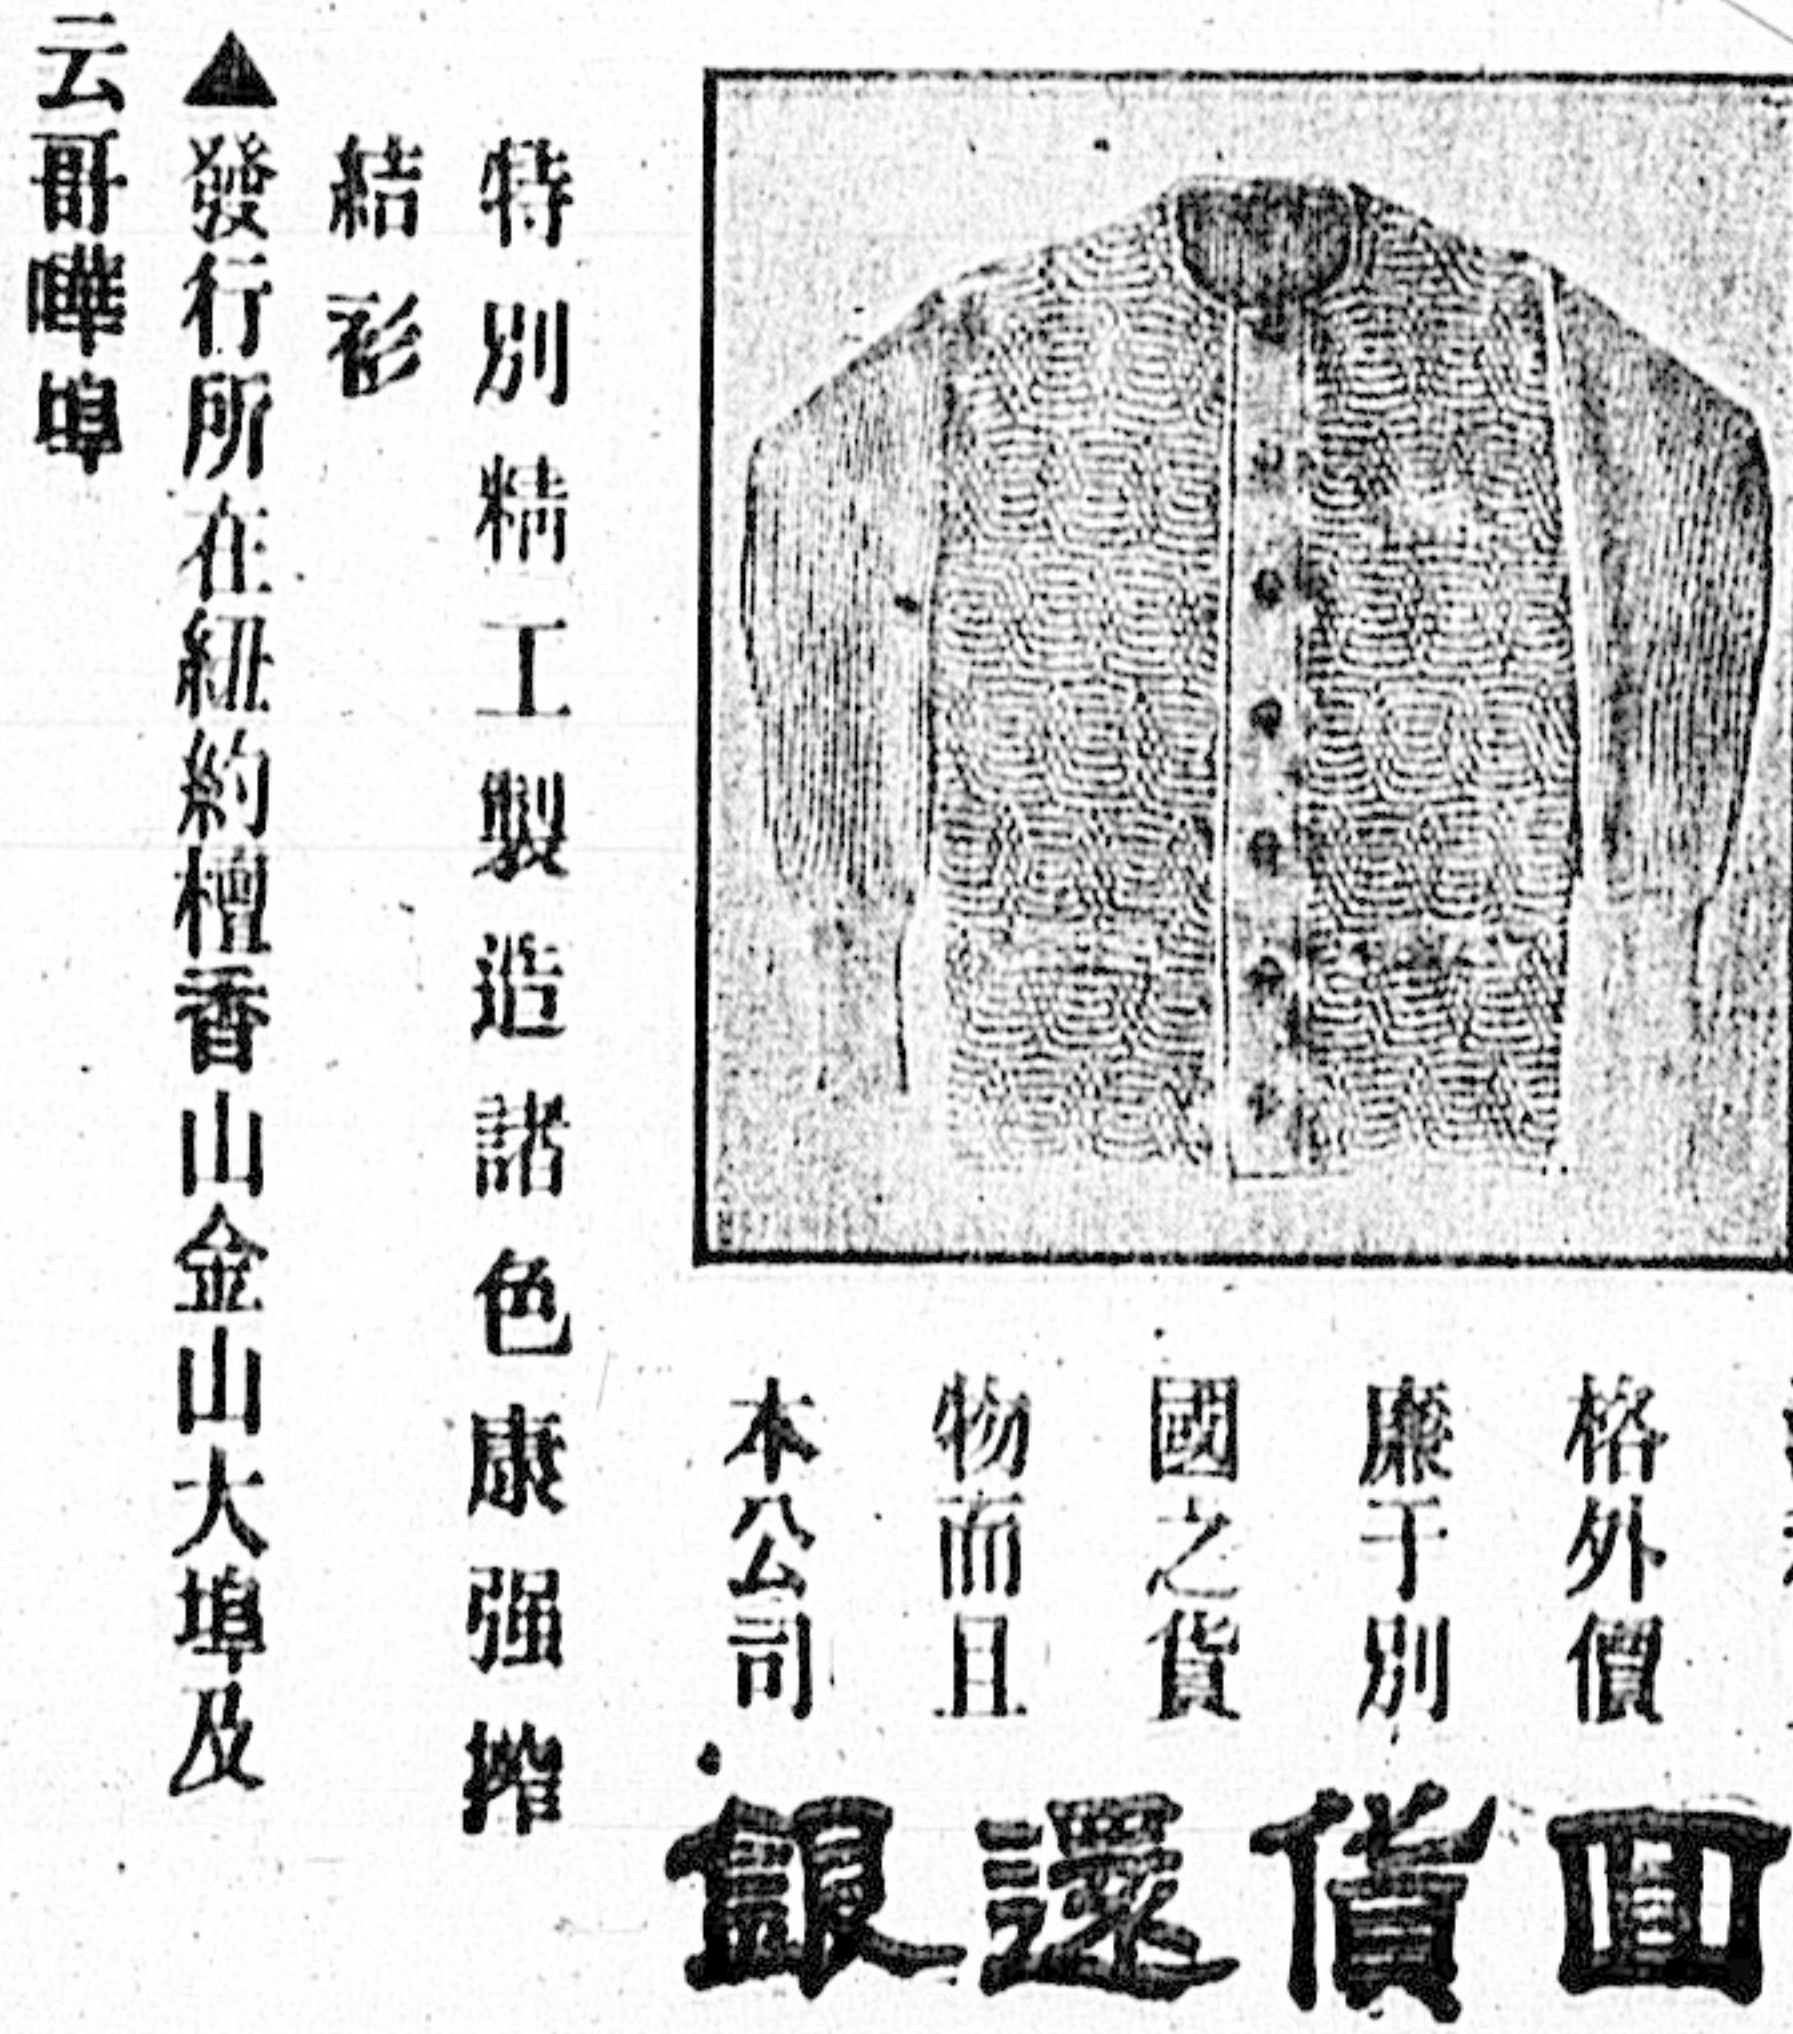 格外價
廉于別
國之貨
物而且
本公司
回貨還銀
特別精工製造諸色康强
結衫
▲發行所在紐約檀香山金山大埠及
云哥嘩埠